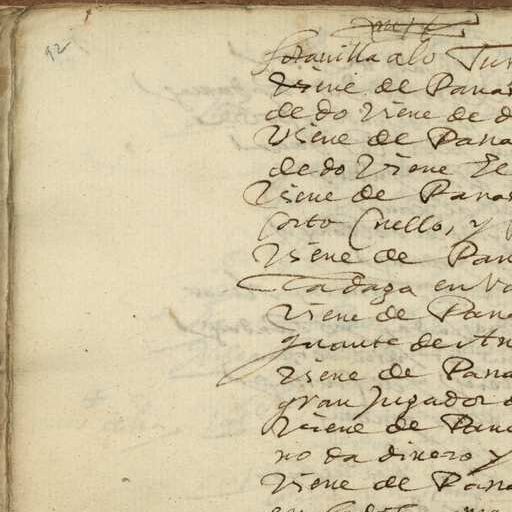 92
sotanilla a lo Tur
Viene de Pana
de do Viene de d
Viene de Pana
de do Viene Le
Viene de Pana
corto Cuello, y
Viene de Pan
la daga en Va
Viene de Pana
guante de An
Viene de Pana
gran Jugador
Viene de Pana
no da dinero y
Viene de Pana